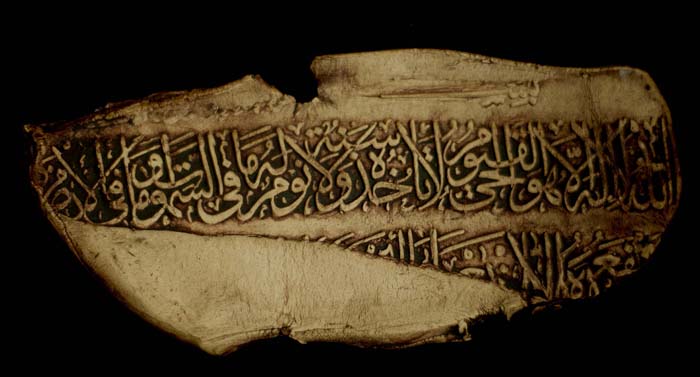 الله لا إله إلا هو الحي القيوم لا تاخذه سنة ولا نوم له ما في السموات وما في الارض
يشفع عنده الا